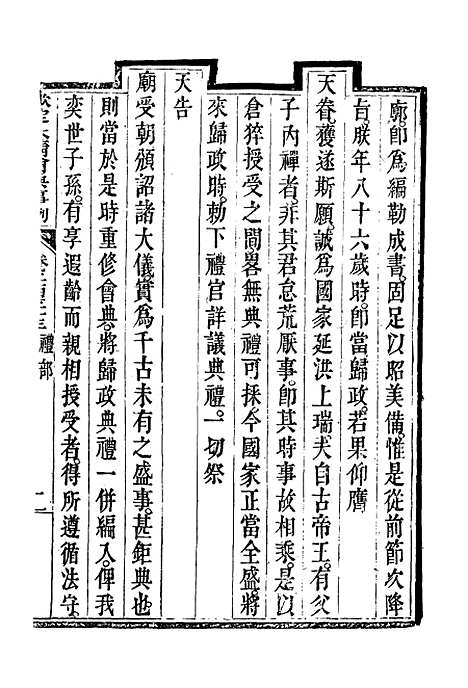 廓卽爲編勒成書。固足以昭美備。惟是從前節次降
旨。朕年八十六歲時。卽當歸政。若果仰膺
天眷。獲遂斯願。誠爲國家延洪上瑞。夫自古帝王。有父
子內禪者。非其君怠荒厭事。卽其時事故相乘。是以
倉猝授受之間。畧無典禮可採。今國家正當全盛。將
來歸政時。勅下禮官詳議典禮。一切祭
天告
廟受朝頒詔諸大儀。實爲千古未有之盛事。甚鉅典也。
則當於是時重修會典。將歸政典禮一併編入。俾我
奕世子孫。有享遐齡而親相授受者。得所遵循法守。
欽定大清會典事例 禮部 二